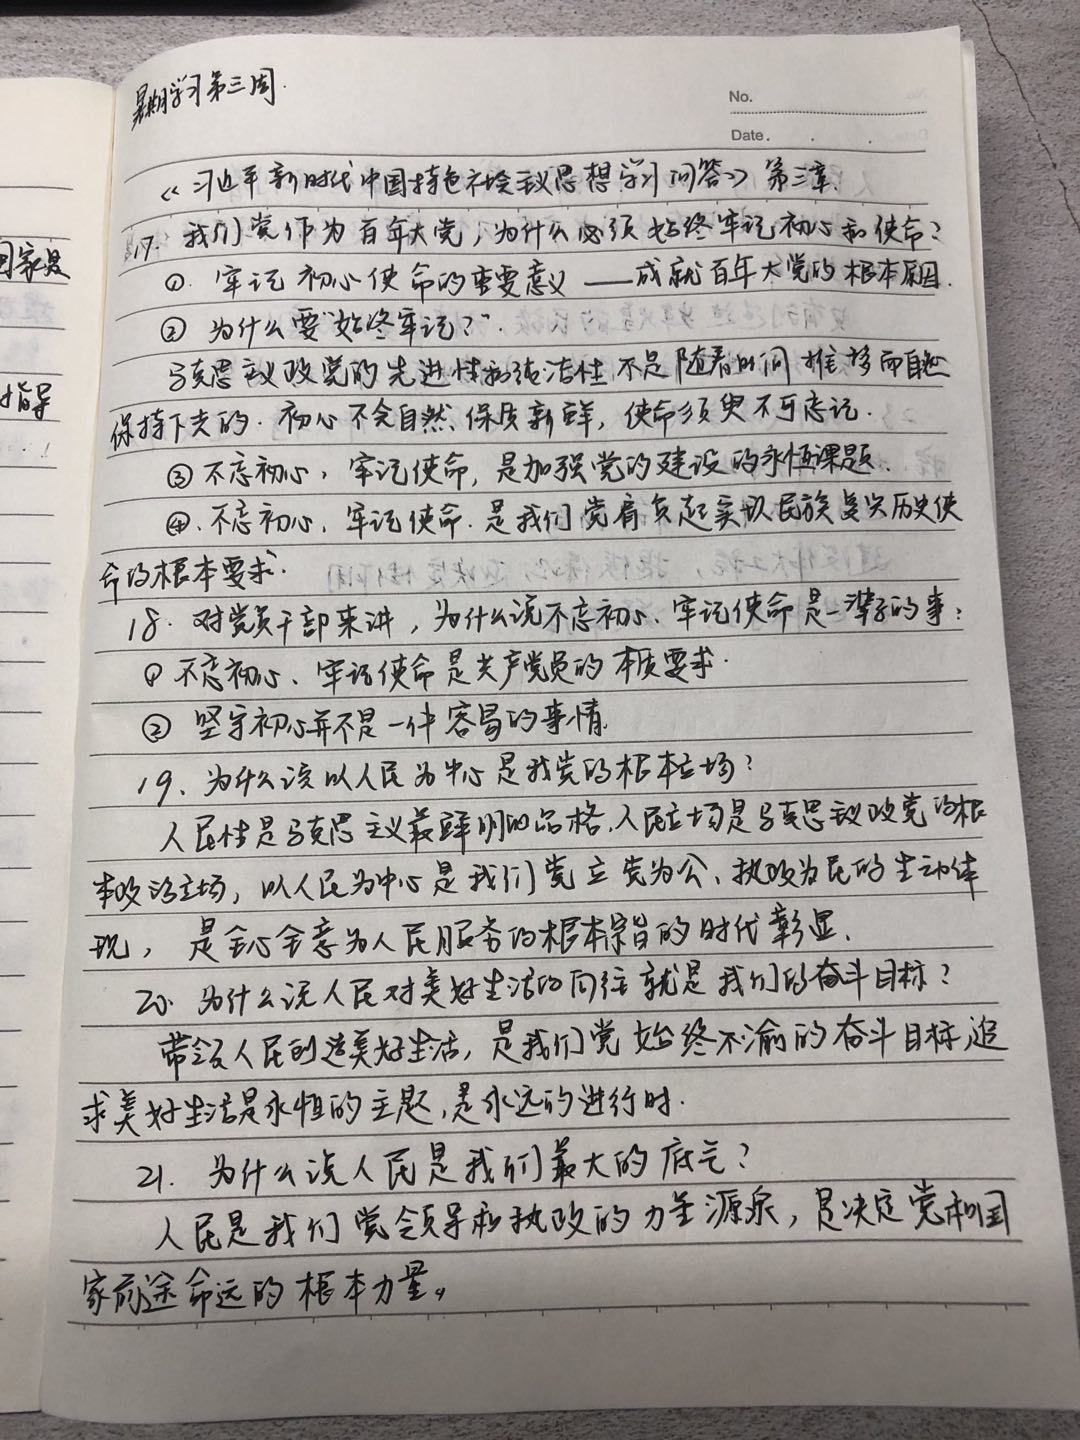 暑期学习第三周.
No.
Date.
《习近平新时代中国特色社会主义思想学习问答》第三章.
17. 我们党作为百年大党,为什么必须始终牢记初心和使命?
①. 牢记初心使命的重要意义 ——成就百年大党的根本原因.
② 为什么要"始终牢记?".
马克思主义政党的先进性和纯洁性不是随着时间推移而自然
保持下去的. 初心不会自然保质新鲜, 使命须臾不可忘记.
③ 不忘初心, 牢记使命, 是加强党的建设的永恒课题.
④. 不忘初心, 牢记使命. 是我们党肩负起实现民族复兴历史使
命的根本要求.
18. 对党员干部来讲, 为什么说不忘初心、牢记使命是一辈子的事:
① 不忘初心、牢记使命是共产党员的本质要求.
② 坚守初心并不是一件容易的事情.
19. 为什么说以人民为中心是我党的根本立场?
人民性是马克思主义最鲜明的品格, 人民立场是马克思主义政党的根
本政治立场, 以人民为中心是我们党立党为公、执政为民的生动体
现, 是全心全意为人民服务的根本宗旨的时代彰显.
20. 为什么说人民对美好生活的向往就是我们的奋斗目标?
带领人民创造美好生活, 是我们党始终不渝的奋斗目标, 追
求美好生活是永恒的主题, 是永远的进行时.
21. 为什么说人民是我们最大的底气?
人民是我们党领导和执政的力量源泉, 是决定党和国
家前途命运的根本力量。
国家是
指导